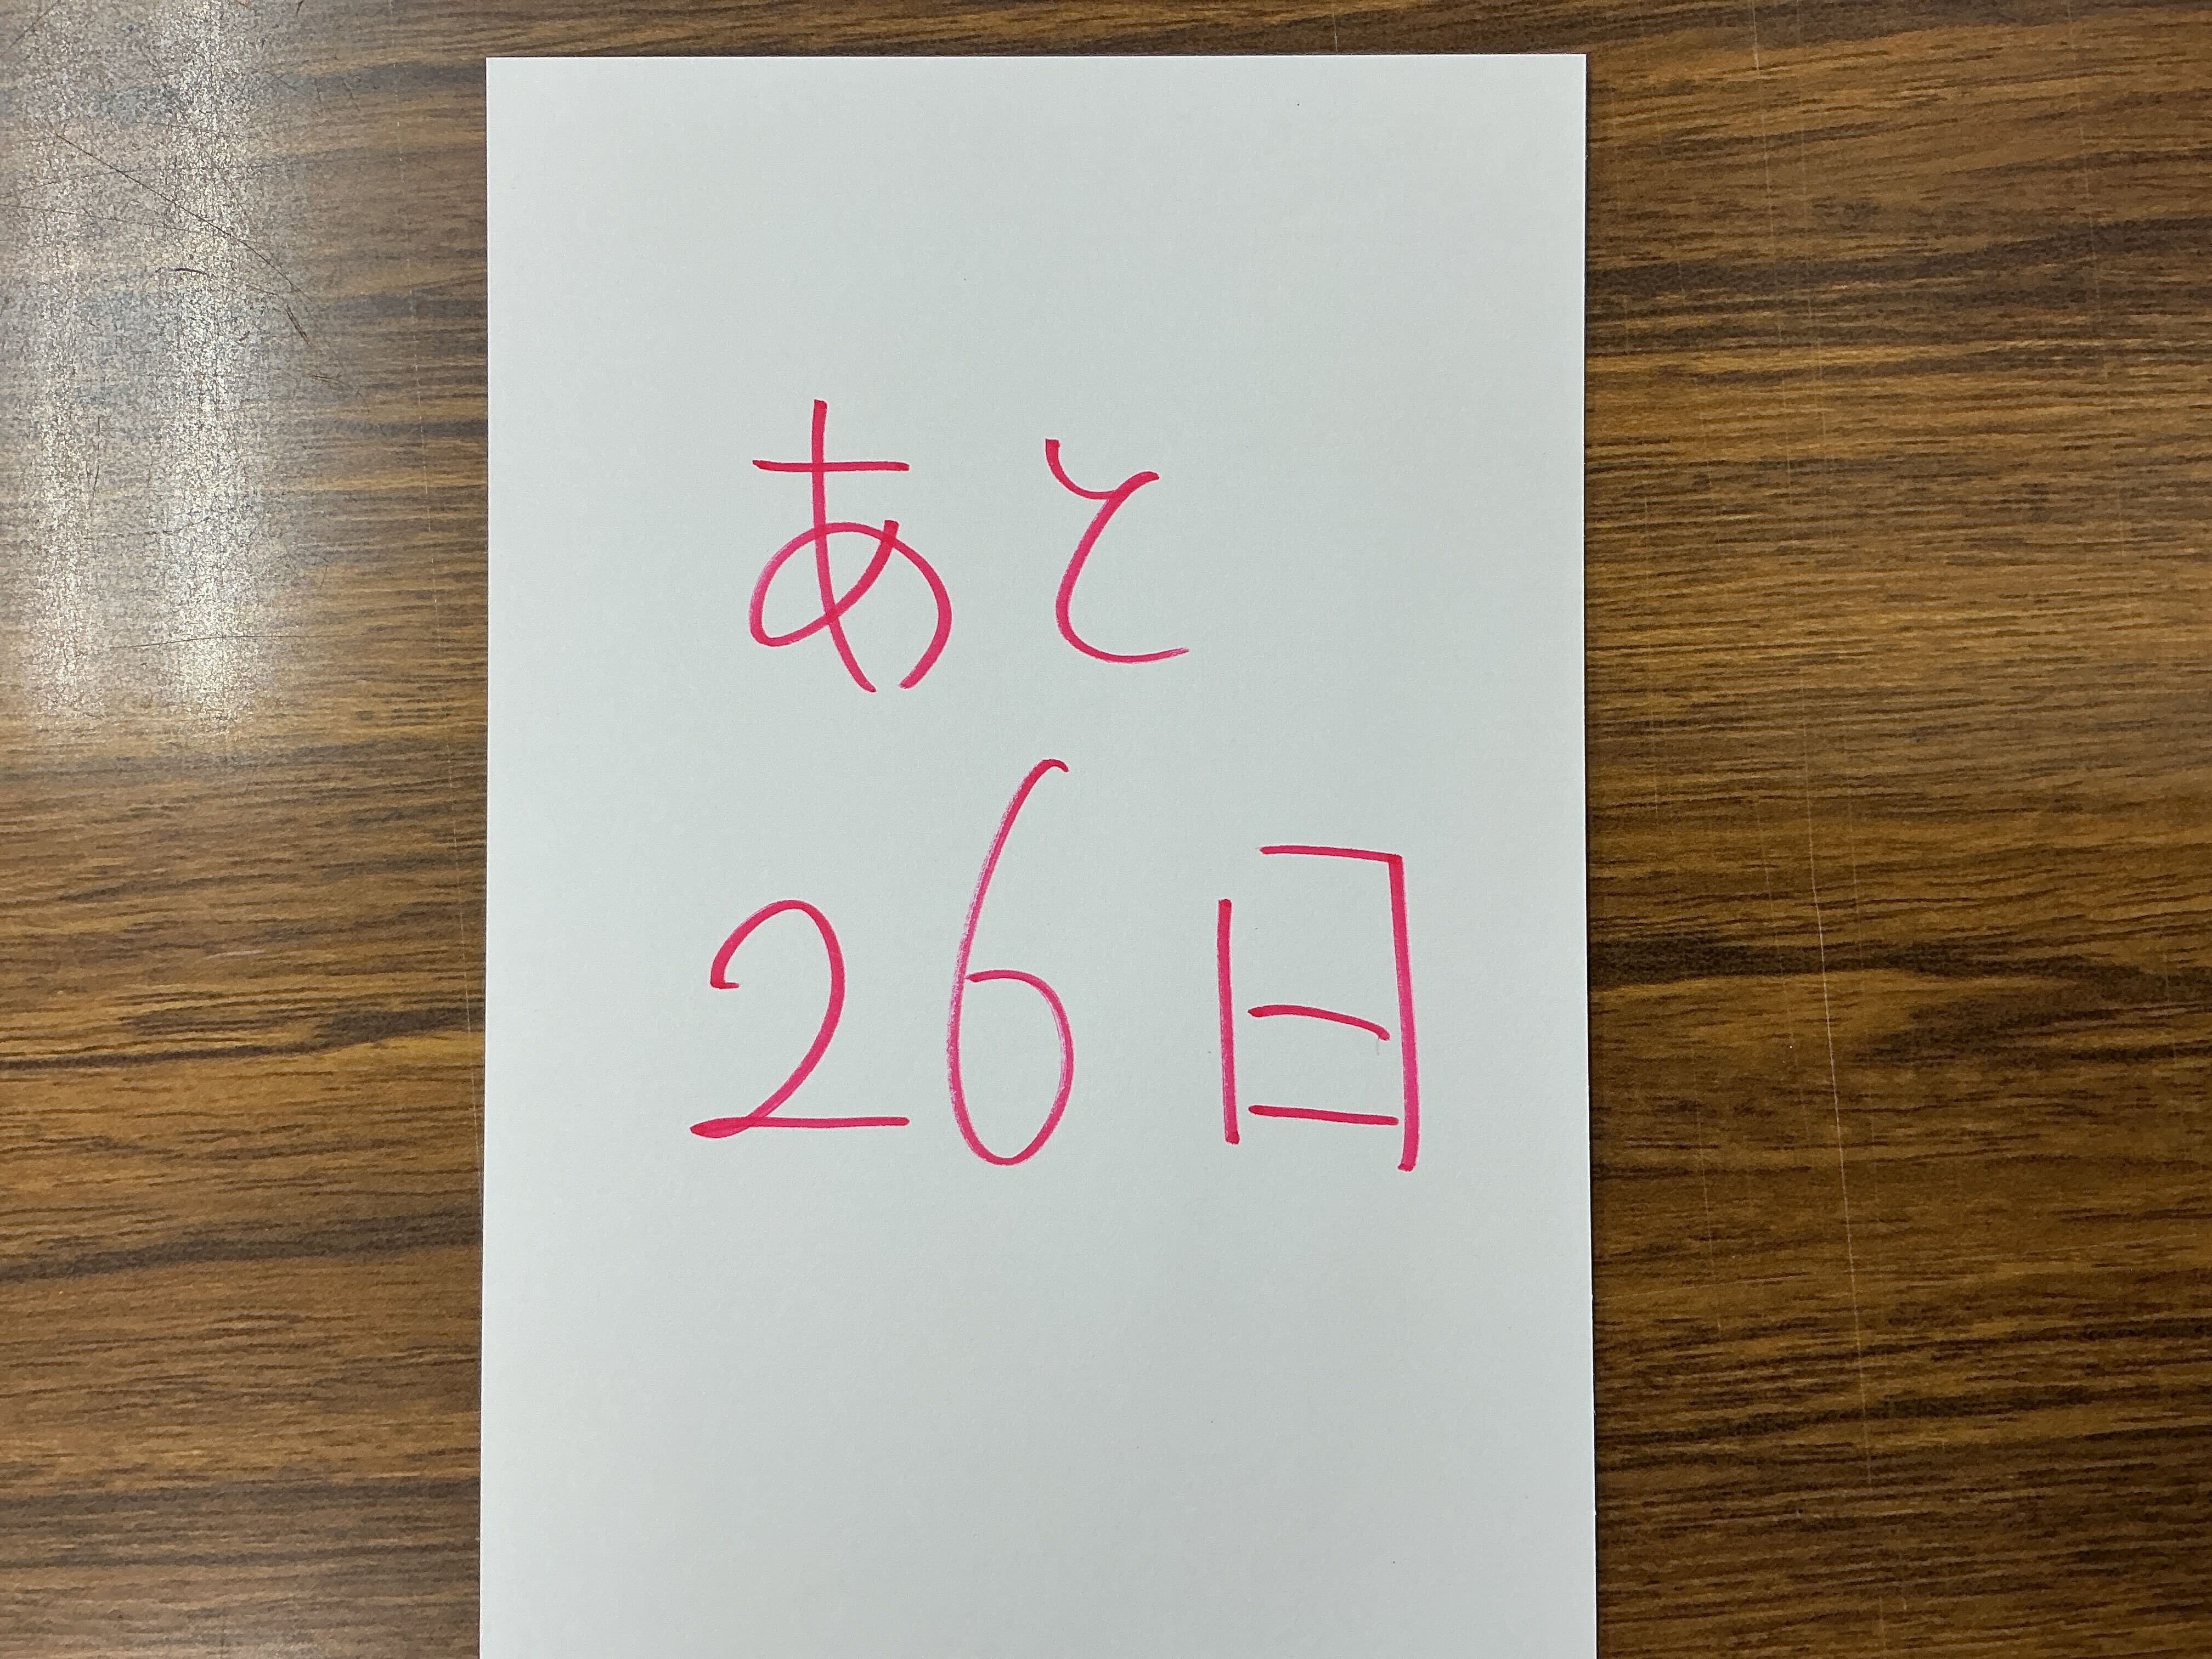 あと
26日